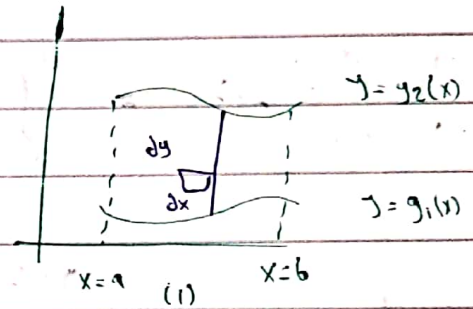 y = y₂(x)
dy
dx
y = g₁(x)
x = a
x = b
(1)